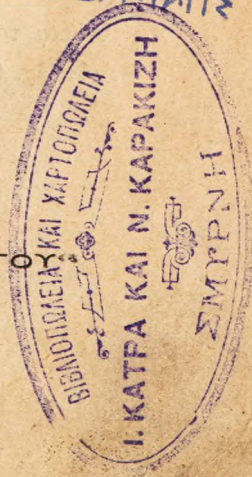 ΒΙΒΛΙΟΠΩΛΕΙΑ ΚΑΙ ΧΑΡΤΟΠΩΛΕΙΑ
Ι. ΚΑΤΡΑ ΚΑΙ Ν. ΚΑΡΑΚΙΖΗ
ΣΜΥΡΝΗ
ΤΟΥ“